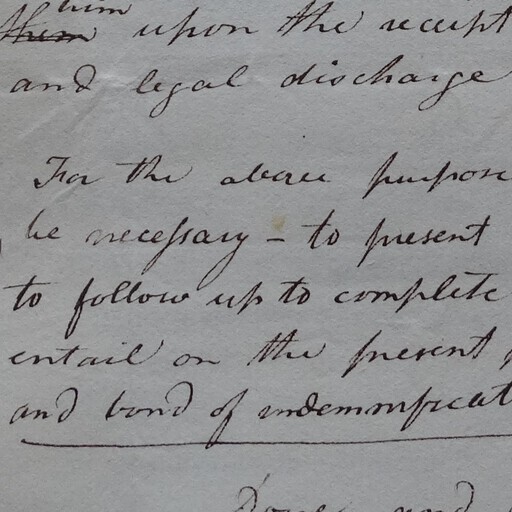 him
them upon the receipt
and legal discharge
For the above purpose
be necessary – to present
to follow up to complete
entail on the present
and bond of indemnificat
and